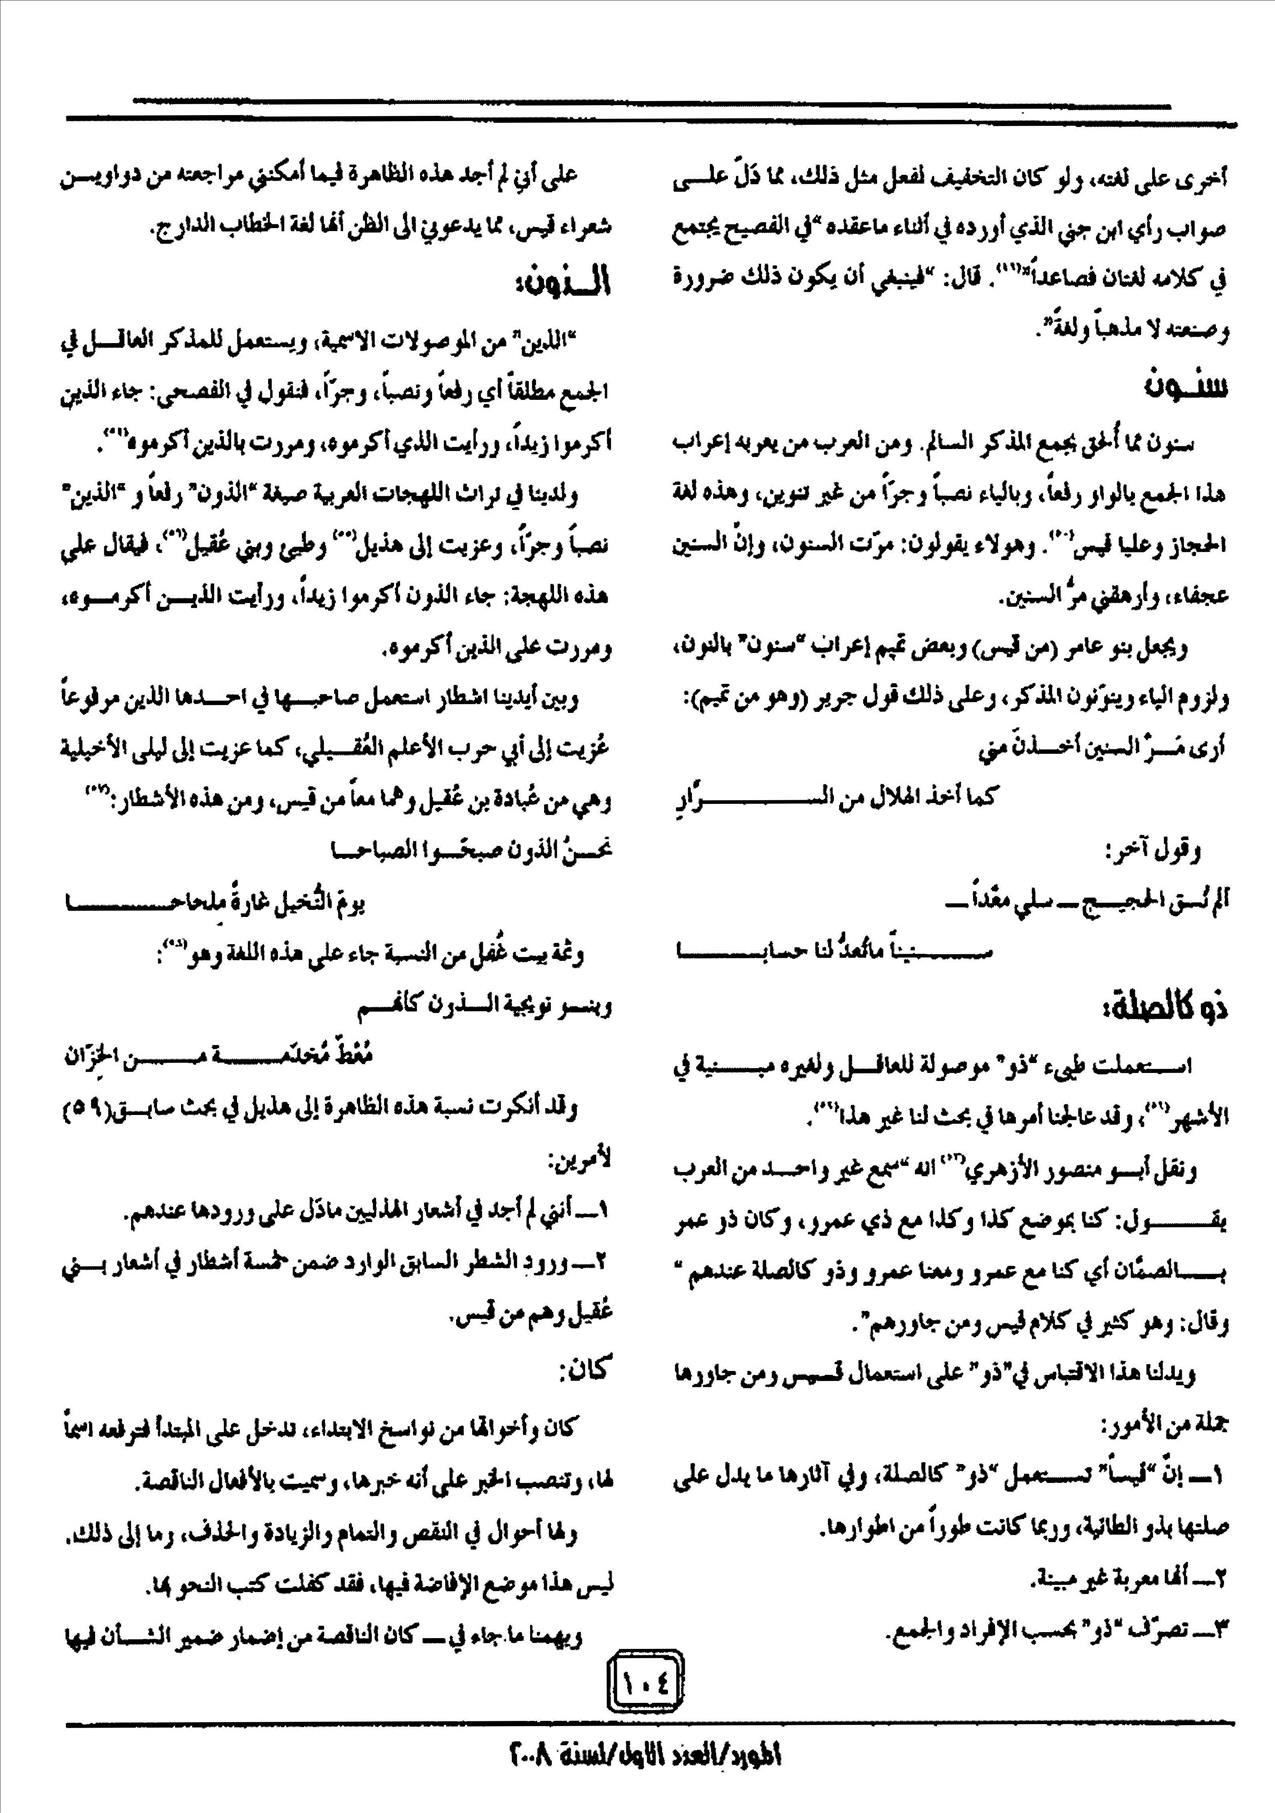 أخرى على لغته، ولو كان التخفيف لفعل مثل ذلك، مما دَلّ علـــى
صواب رأي ابن جني الذي أورده في أثناء ماعقده "في الفصيح يجتمع
في كلامه لغتان فصاعداً"(٤٩). قال: "فينبغي أن يكون ذلك ضرورة
وصنعته لا مذهباً ولغةً".
سنـون
سنون مما أُلحق بجمع المذكر السالم. ومن العرب من يعربه إعراب
هذا الجمع بالواو رفعاً، وبالياء نصباً وجرّاً من غير تنوين، وهذه لغة
الحجاز وعليا قيس(٥٠). وهولاء يقولون: مرّت السنون، وإنّ السنين
عجفاء، وأرهقني مرُّ السنين.
ويجعل بنو عامر (من قيس) وبعض تميم إعراب "سنون" بالنون،
ولزوم الياء وينوّنون المذكر، وعلى ذلك قول جرير (وهو من تميم):
أرى مَــرّ السنين أخــذنَ مني
كما أخذ الهلال من الســـــــــرَّارِ
وقول آخر:
ألم نُسق الحجيــج ــ سلي معّداً ــ
ســـــنيناً ماتُعدُّ لنا حسابـــــــا
ذو كالصلة:
اســـتعملت طيىء "ذو" موصولة للعاقــل ولغيره مبـــنية في
الأشهر(٥١)، وقد عالجنا أمرها في بحث لنا غير هذا(٥٢).
ونقل أبــو منصور الأزهري(٥٣) انه "سمع غير واحــد من العرب
يقـــــول: كنا بموضع كذا وكذا مع ذي عمرو، وكان ذو عمر
بــــالصمَّان أي كنا مع عمرو ومعنا عمرو وذو كالصلة عندهم "
وقال: وهو كثير في كلام قيس ومن جاورهم".
ويدلنا هذا الاقتباس في"ذو" على استعمال قـــيس ومن جاورها
جملة من الأمور:
١ــ إنّ "قيساً" تســتعمل "ذو" كالصلة، وفي آثارها ما يدل على
صلتها بذو الطائية، وربما كانت طوراً من اطوارها.
٢ــ أنها معربة غير مبينة.
٣ــ تصرّف "ذو" بحسب الإفراد والجمع.
على أني لم أجد هذه الظاهرة فيما أمكنني مراجعته من دواويــن
شعراء قيس، مما يدعوني الى الظن أنها لغة الخطاب الدارج.
الــذون:
"اللذين" من الموصولات الاسمية، ويستعمل للمذكر العاقــل في
الجمع مطلقاً أي رفعاً ونصباً، وجرّاً، فنقول في الفصحى: جاء الذين
أكرموا زيداً، ورأيت الذي أكرموه، ومررت بالذين أكرموه(٥٤).
ولدينا في تراث اللهجات العربية صيغة "الذون" رفعاً و "الذين"
نصباً وجرّاً، وعزيت إلى هذيل(٥٥) وطيئ وبني عُقيل(٥٦)، فيقال على
هذه اللهجة: جاء الذون أكرموا زيداً، ورأيت الذيــن أكرمــوه،
ومررت على الذين أكرموه.
وبين أيدينا اشطار استعمل صاحبــها في احــدها الذين مرفوعاً
عُزيت إلى أبي حرب الأعلم العُقــيلي، كما عزيت إلى ليلى الأخيلية
وهي من عُبادة بن عُقيل وهما معاً من قيس، ومن هذه الأشطار:(٥٧)
نحــنُ الذون صبحّــوا الصباحــا
يومَ النُّخيل غارةً مِلحاحــــــــــا
وثمة بيت غُفل من النسبة جاء على هذه اللغة وهو(٥٨):
وبنــو نويجية الــذون كأنهــم
مُعْطٌ مُخَدَّمـــــــة مـــــن الخِزّان
وقد أنكرت نسبة هذه الظاهرة إلى هذيل في بحث سابــق(٥٩)
لأمرين:
١ــ أنني لم أجد في أشعار الهذليين مادّل على ورودها عندهم.
٢ــ ورود الشطر السابق الوارد ضمن خمسة أشطار في أشعار بــني
عُقيل وهم من قيس.
كان:
كان وأخواتها من نواسخ الابتداء، تدخل على المبتدأ فترفعه اسماً
لها، وتنصب الخبر على أنه خبرها، وسميت بالأفعال الناقصة.
ولها أحوال في النقص والتمام والزيادة والحذف، وما إلى ذلك.
ليس هذا موضع الإفاضة فيها، فقد كفلت كتب النحو بها.
ويهمنا ما جاء في ــ كان الناقصة من إضمار ضمير الشــأن فيها
١٠٤
المورد/العدد الاول/لسنة ٢٠٠٨